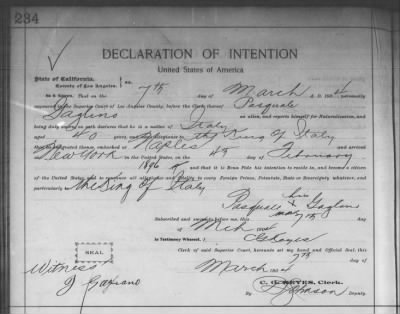 234
DECLARATION OF INTENTION
United States of America
State of California,
County of Los Angeles. ss.
On the 7th day of March A. D. 1904 personally
appeared in the Superior Court of Los Angeles County, before the Clerk thereof Pasquale
Gaglino an alien, and reports himself for Naturalization, and
being duly sworn on oath declares that he is a native of Italy
aged 40 years, and allegiance to the King of Italy
that he embarked at Naples and arrived
New York in the United States, on the 4th day of February
1896 and that it is Bona Fide his intention to reside in, and become a citizen
of the United States, and to renounce all allegiance and fidelity to every Foreign Prince, Potentate, State or Sovereignty whatever, and
particularly to the King of Italy
Pasquale his x
Subscribed and sworn to before me, this 7th day
of Mch 1904
In Testimony Whereof, I C G Keyes
Clerk of said Superior Court, hereunto set my hand and Official Seal, this 7th
day of March 1904
C. G. KEYES, Clerk.
By Deputy.
SEAL
Witness